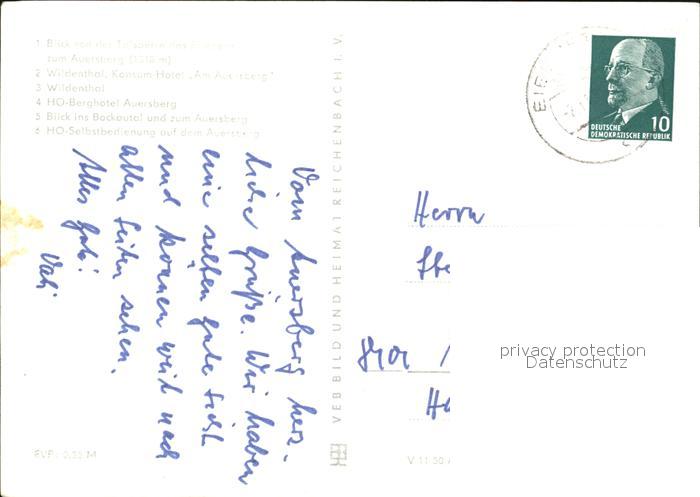 1 Blick von der Talsperre des
zum Auersberg (1018 m)
2 Wildenthal, Konsum-Hotel „Am Auersberg"
3 Wildenthal
4 HO-Berghotel Auersberg
5 Blick ins Bockautal und zum Auersberg
6 HO-Selbstbedienung auf dem Auersberg
Vom Auersberg herz-
liche Grüße. Wir haben
eine selten gute Sicht
und können weit nach
allen Seiten sehen.
Alles Gute!
EVP: 0,35 M
VEB BILD UND HEIMAT REICHENBACH I. V.
V 11 50
DEUTSCHE
DEMOKRATISCHE REPUBLIK
10
Herrn
privacy protection
Datenschutz